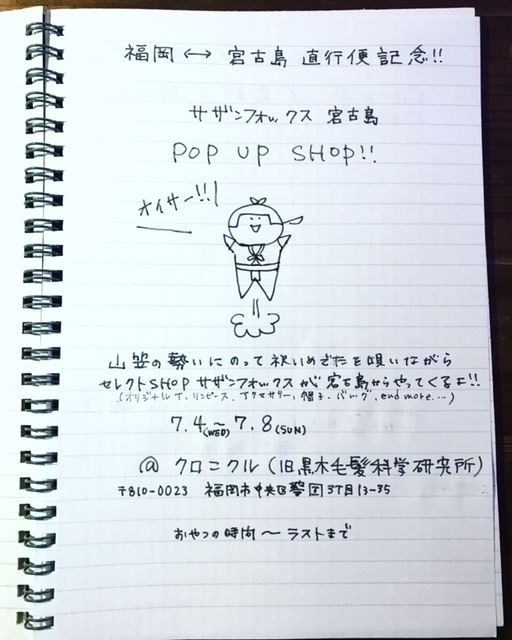 福岡 ↔ 宮古島 直行便記念!!
サザンフォックス 宮古島
POP UP SHOP!!
オイサー!!!
山笠の勢いにのって祝いめでたを唄いながら
セレクトSHOP サザンフォックスが宮古島からやってくるよ!!
(オリジナルT、ワンピース、アクセサリー、帽子、バッグ、end more...)
7.4(WED)〜7.8(SUN)
@ クロニクル(旧黒木毛髪科学研究所)
〒810-0023 福岡市中央区警固3丁目13-35
おやつの時間〜ラストまで